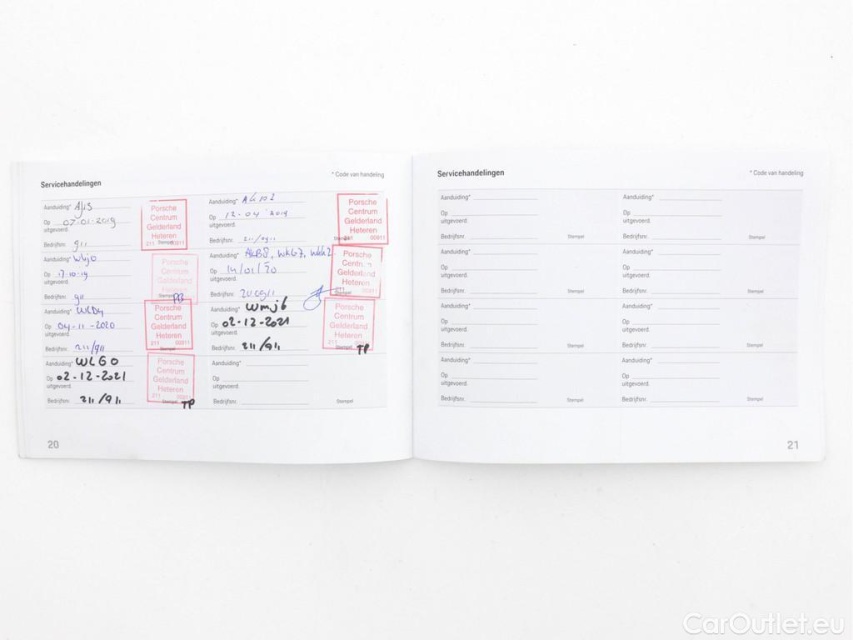 Servicehandelingen
* Code van handeling
Aanduiding* AJ5
Op 07-01-2019
uitgevoerd:
Bedrijfsnr.: 911
Stempel
Porsche
Centrum
Gelderland
Heteren
211 00911
Aanduiding*
Op 12-04-2019
uitgevoerd:
Bedrijfsnr.: 211/911
Stempel
Porsche
Centrum
Gelderland
Heteren
211 00911
Aanduiding* WHJ0
Op 17.10.19
uitgevoerd:
Bedrijfsnr.:
Porsche
Centrum
Gelderland
Heteren
PB
Aanduiding* AKB8, WKG7,
Op 14/01/20
uitgevoerd:
Bedrijfsnr.:
Porsche
Centrum
Gelderland
Heteren
Aanduiding* WLD4
Op 04-11-2020
uitgevoerd:
Bedrijfsnr.: 211/911
Stempel
Porsche
Centrum
Gelderland
Heteren
211 00911
Aanduiding* WMJ6
Op 02-12-2021
uitgevoerd:
Bedrijfsnr.: 211/911
Stempel
Porsche
Centrum
Gelderland
Heteren
211 00911
TP
Aanduiding* WLG0
Op 02-12-2021
uitgevoerd:
Bedrijfsnr.: 211/911
Stempel
Porsche
Centrum
Gelderland
Heteren
211 00911
TP
Aanduiding*
Op
uitgevoerd:
Bedrijfsnr.:
Stempel
20
Servicehandelingen
* Code van handeling
Aanduiding*
Op
uitgevoerd:
Bedrijfsnr.:
Stempel
Aanduiding*
Op
uitgevoerd:
Bedrijfsnr.:
Stempel
Aanduiding*
Op
uitgevoerd:
Bedrijfsnr.:
Stempel
Aanduiding*
Op
uitgevoerd:
Bedrijfsnr.:
Stempel
Aanduiding*
Op
uitgevoerd:
Bedrijfsnr.:
Stempel
Aanduiding*
Op
uitgevoerd:
Bedrijfsnr.:
Stempel
Aanduiding*
Op
uitgevoerd:
Bedrijfsnr.:
Stempel
Aanduiding*
Op
uitgevoerd:
Bedrijfsnr.:
Stempel
21
CarOutlet.eu